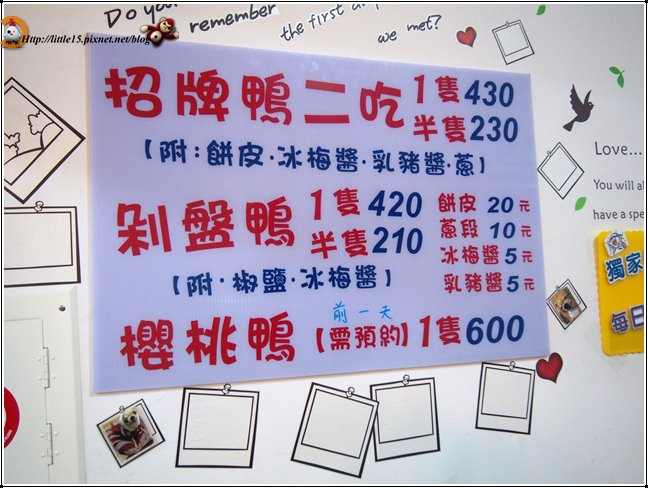 Do you remember the first
we met?
Http://little15.pixnet.net/blog
招牌鴨二吃 1隻430
半隻230
【附:餅皮·冰梅醬·乳豬醬·蔥】
剁盤鴨 1隻420
半隻210
【附·椒鹽·冰梅醬】
餅皮 20元
蔥段 10元
冰梅醬 5元
乳豬醬 5元
前一天
櫻桃鴨【需預約】1隻600
Love...
You will al
have a spe
獨家
每日